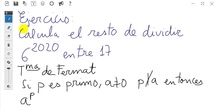 Ejercicio:
Calcula el resto de dividir
6^2020 entre 17
Tma de Fermat
Si p es primo, a≠0 p∤a entonces
a^p